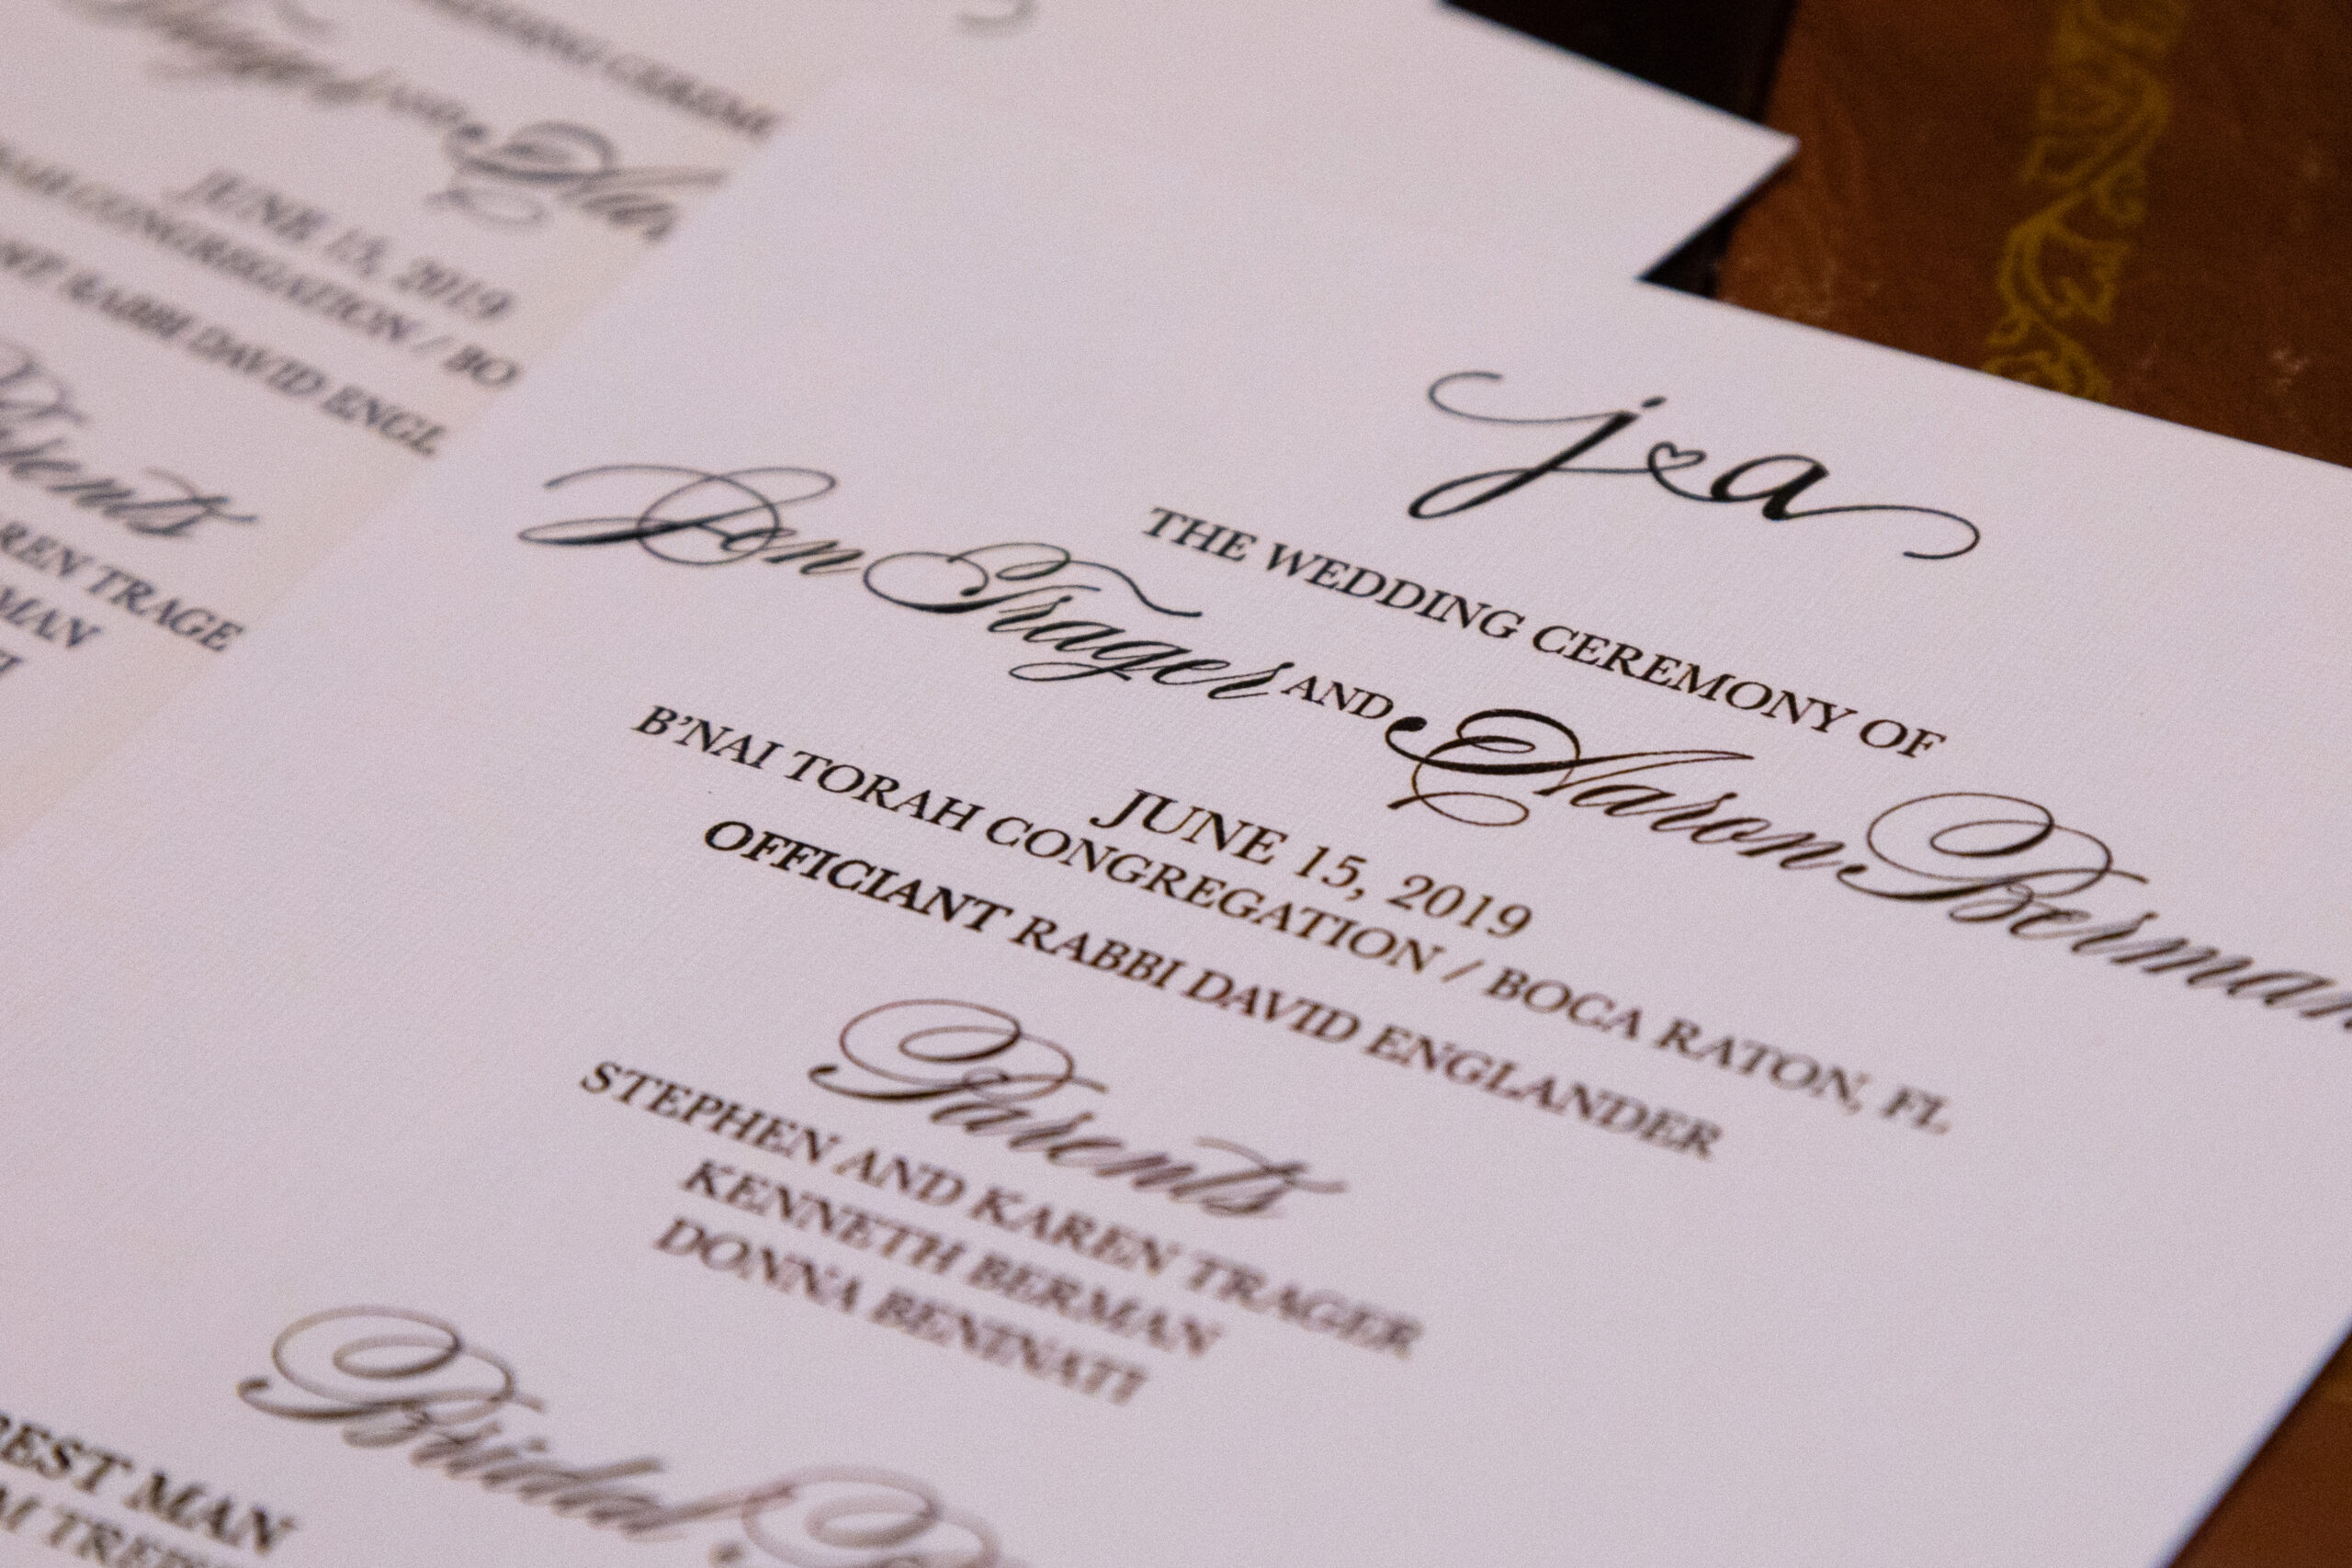 j a
THE WEDDING CEREMONY OF
Jon Trager AND Aaron Berman
JUNE 15, 2019
B'NAI TORAH CONGREGATION / BOCA RATON, FL
OFFICIANT RABBI DAVID ENGLANDER
Parents
STEPHEN AND KAREN TRAGER
KENNETH BERMAN
DONNA BENINATI
Bridal
BEST MAN
CEREM
Trager AND Aar
JUNE 15, 2019
CONGREGATION / BO
RABBI DAVID ENGL
Parents
REN TRAGE
MAN